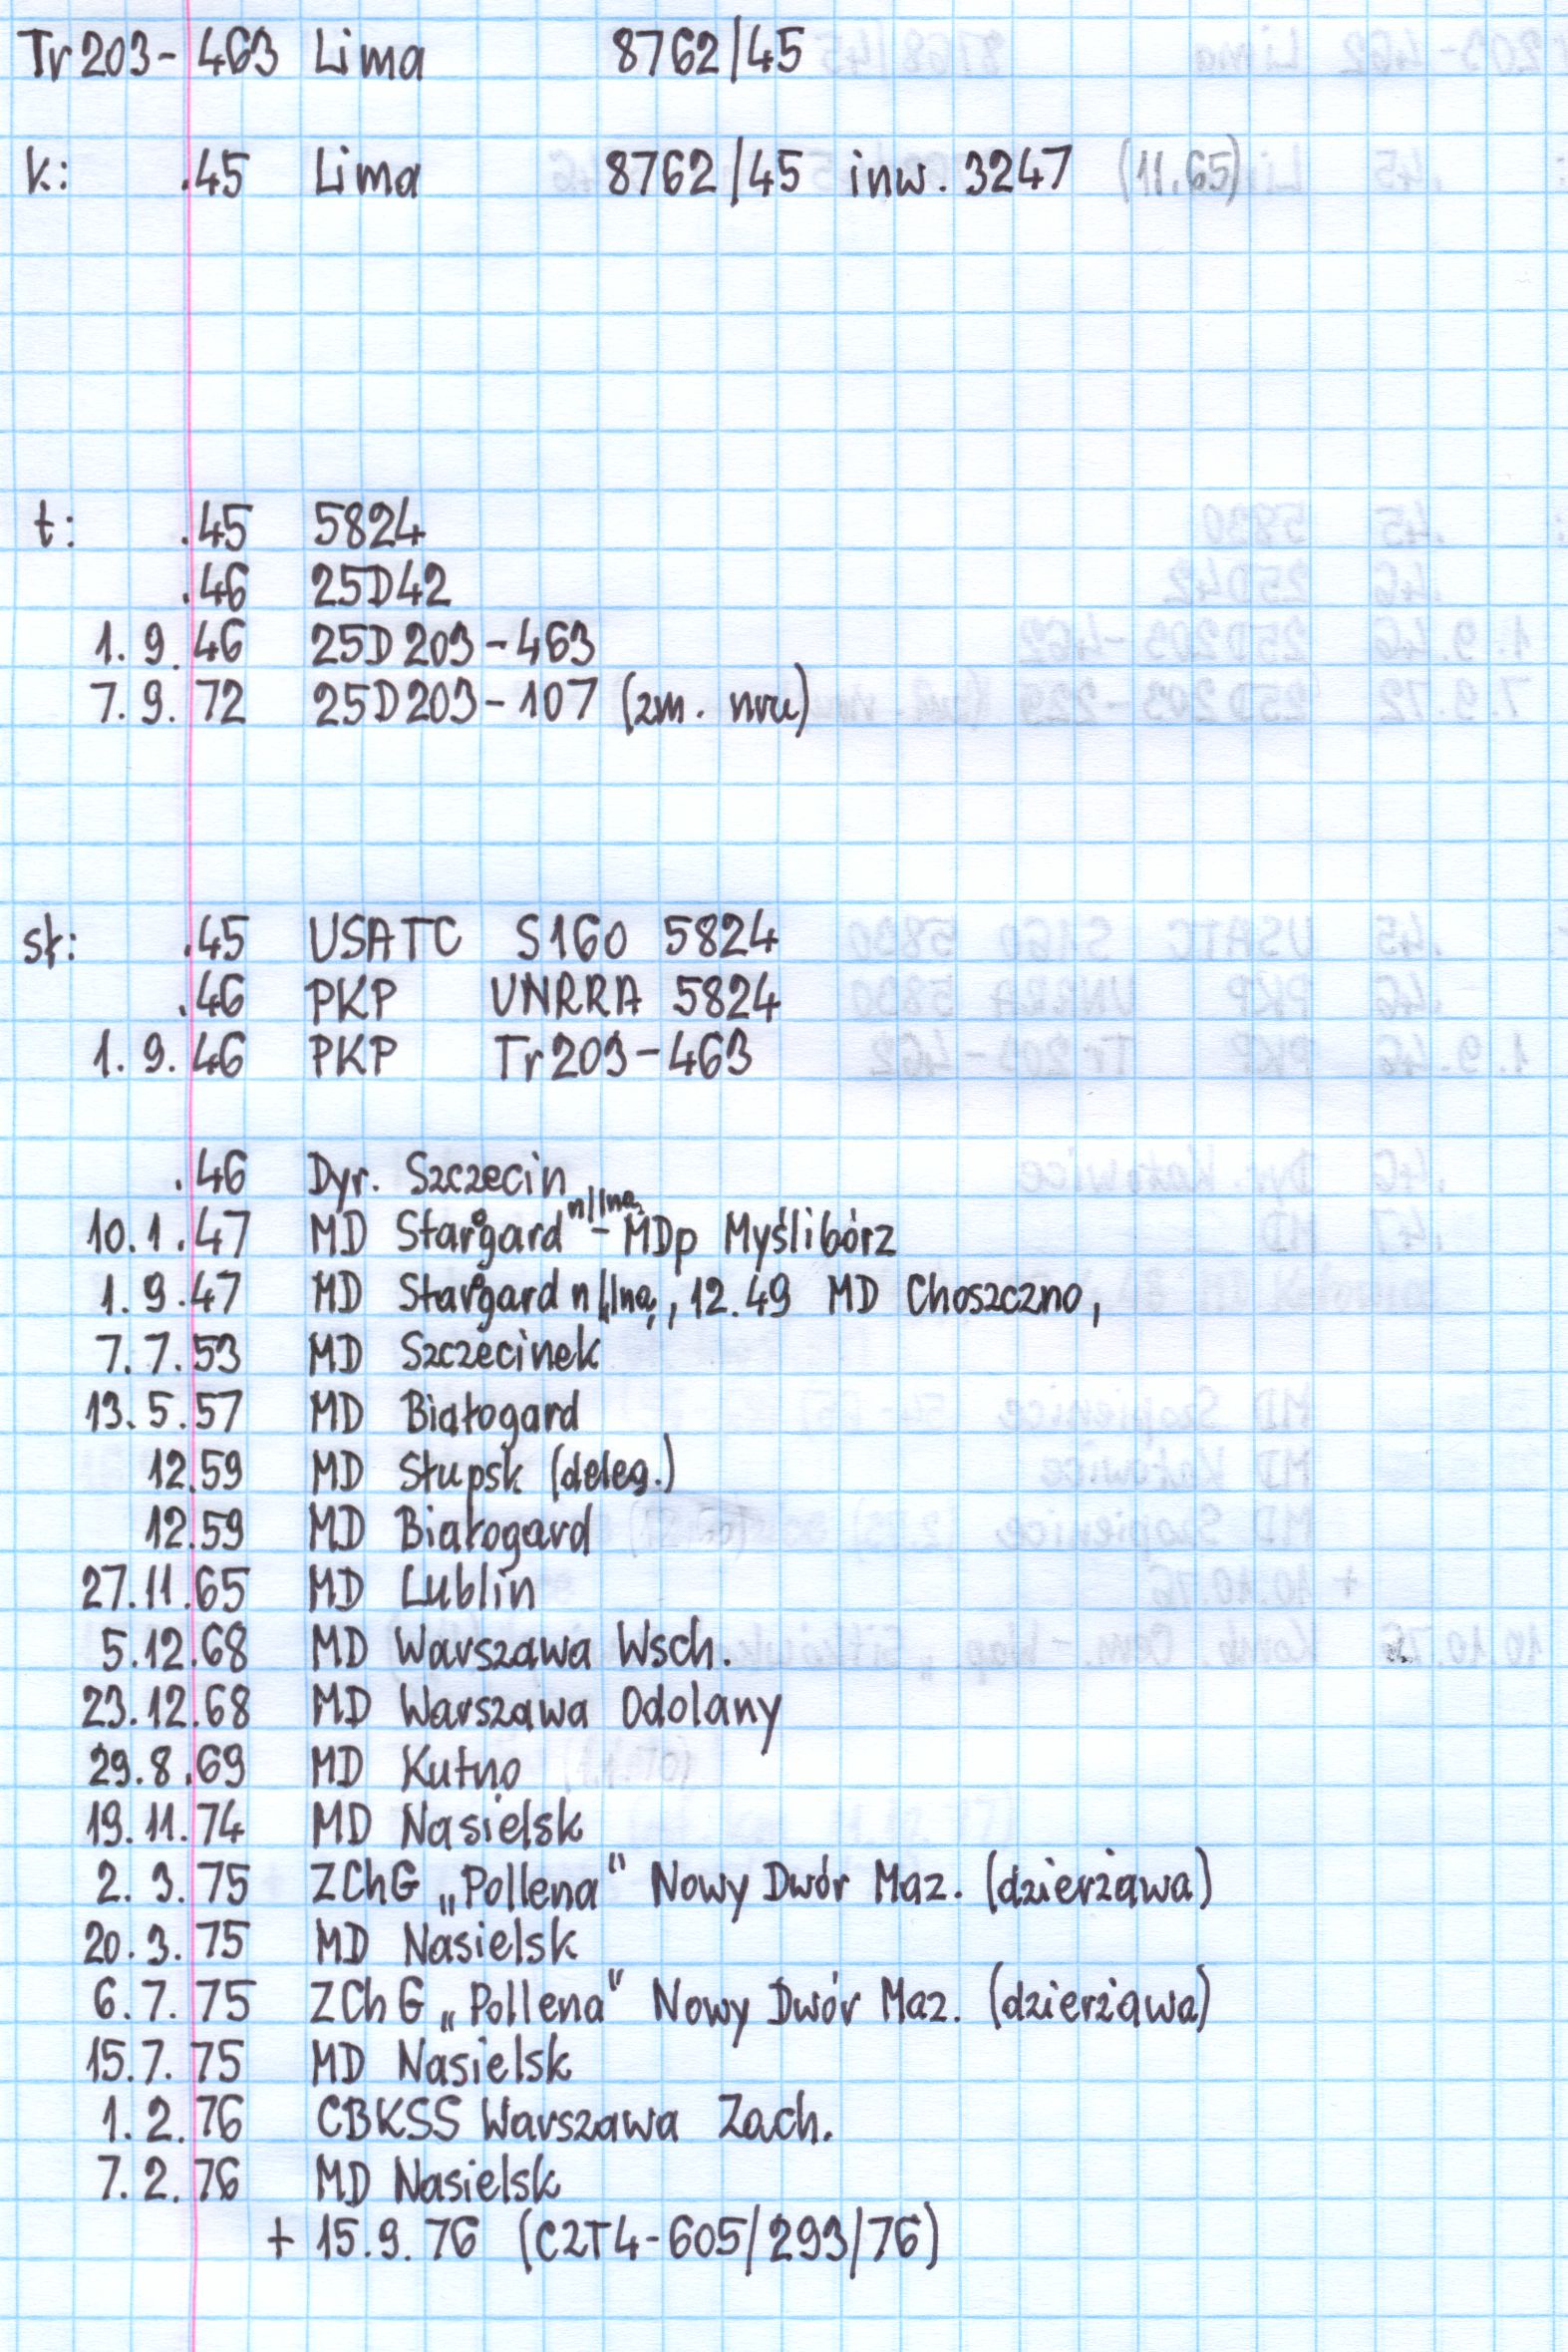 Tr203-463 Lima 8762/45
k: .45 Lima 8762/45 inw. 3247 (11.65)
t: .45 5824
.46 25D42
1.9.46 25D203-463
7.9.72 25D203-107 (zm. nru)
sł: .45 USATC S160 5824
.46 PKP UNRRA 5824
1.9.46 PKP Tr203-463
.46 Dyr. Szczecin
10.1.47 MD Stargard n/Iną - MDp Myślibórz
1.9.47 MD Stargard n/Iną, 12.49 MD Choszczno,
7.7.53 MD Szczecinek
13.5.57 MD Białogard
12.59 MD Słupsk (deleg.)
12.59 MD Białogard
27.11.65 MD Lublin
5.12.68 MD Warszawa Wsch.
23.12.68 MD Warszawa Odolany
29.8.69 MD Kutno
19.11.74 MD Nasielsk
2.3.75 ZChG „Pollena" Nowy Dwór Maz. (dzierżawa)
20.3.75 MD Nasielsk
6.7.75 ZChG „Pollena" Nowy Dwór Maz. (dzierżawa)
15.7.75 MD Nasielsk
1.2.76 CBKSS Warszawa Zach.
7.2.76 MD Nasielsk
+ 15.9.76 (C2T4-605/293/76)